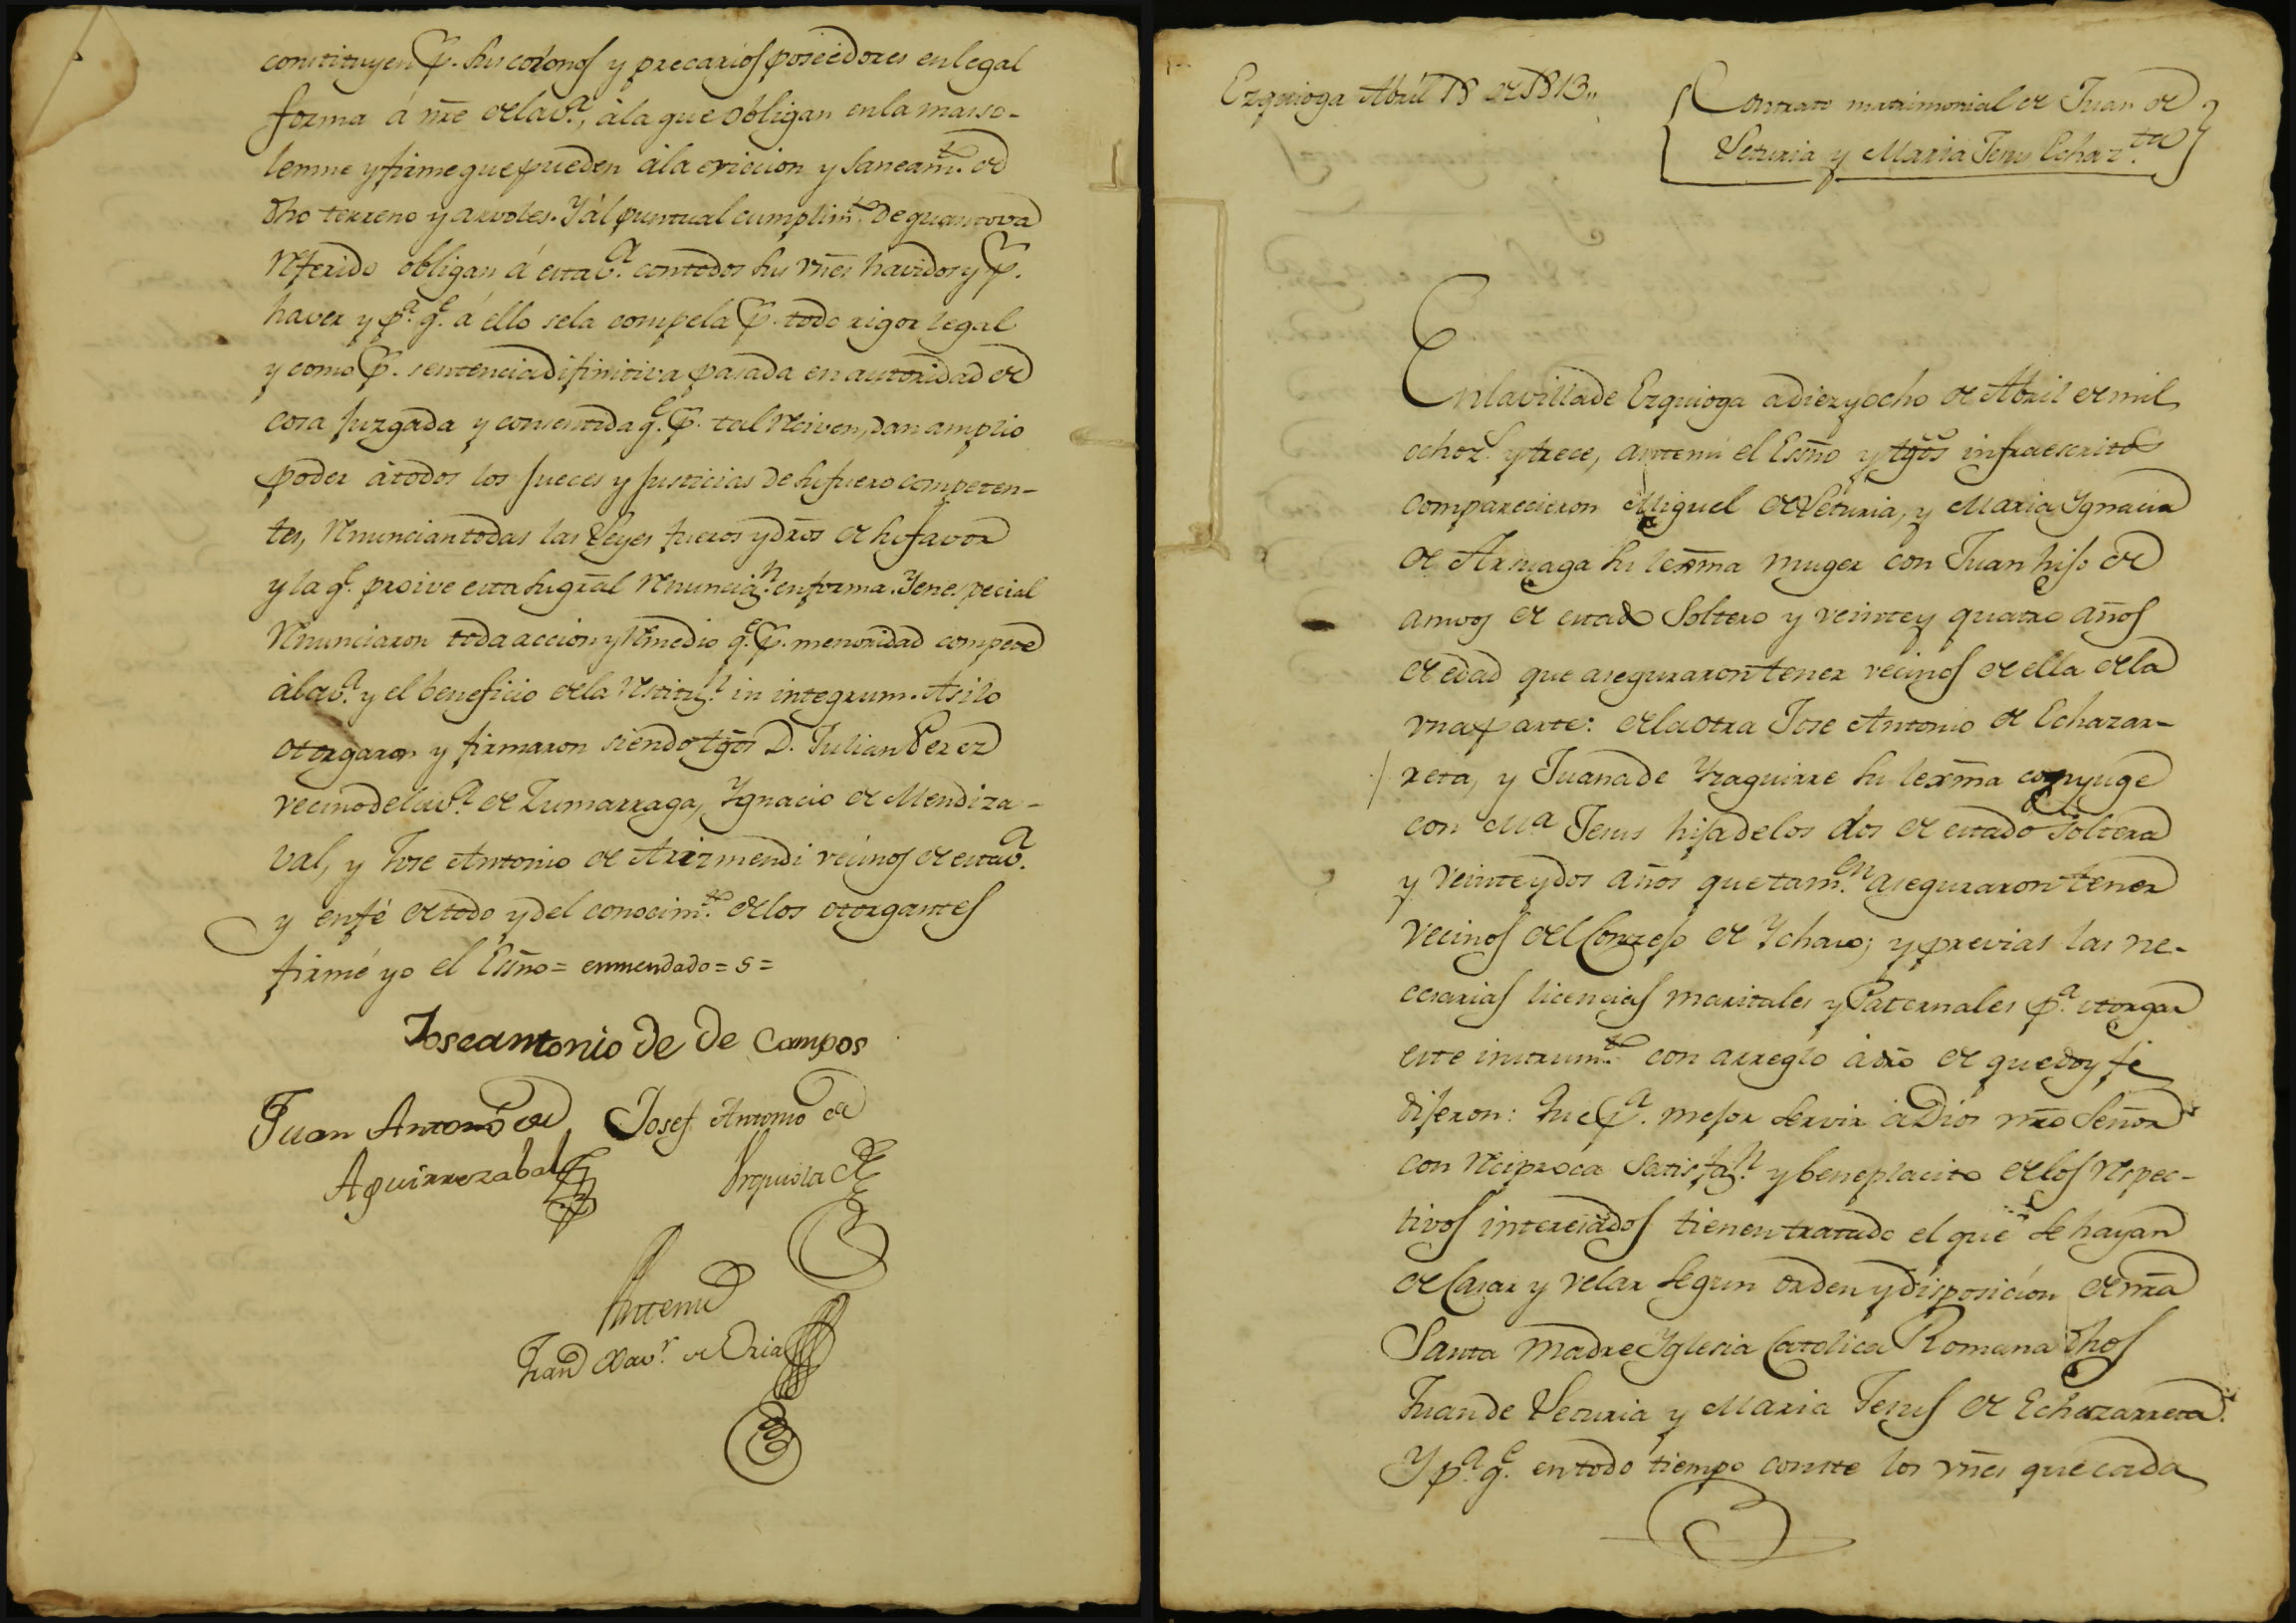 constituyen p.r sus colonos y precarios poseedores en legal
forma á nre de la v.a, á la que obligan en la mas so-
lemne y firme que pueden á la eviccion y saneam.to de
dho terreno y arvoles. Y ál puntual cumplim.to de quanto va
referido obligan á esta v.a con todos sus vnes havidos y p.r
haver y p.a q.e á ello se la compela p.r todo rigor legal
y como p.r sentencia difinitiva pasada en autoridad de
cosa juzgada y consentida q.e p.r tal reciven, dan amplio
poder á todos los Jueces y Justicias de su fuero competen-
tes, renuncian todas las Leyes fueros y dros de su favor
y la q.e proive esta su gral renuncia.n en forma. Y en especial
renunciaron toda accion y remedio q.e p.r menoridad compete
á la v.a y el beneficio de la restitu.n in integrum. Asi lo
otorgaron y firmaron siendo tgos D. Julian Perez
vecino de la v.a de Zumarraga, Ygnacio de Mendiza-
val, y Jose Antonio de Arizmendi vecinos de esta v.a
y en fé de todo y del conocim.to de los otorgantes
firmé yo el Esño = enmendado = s =
Joseantonio de de Campos
Juan Antonio de Josef Antonio de
Aguirrezabal Urquiola
Antemi
Fran.co Xav.r de Oria
Ezquioga Abril 18 de 1813,,
Contrato matrimonial de Juan de
Leturia y Maria Jesus Echaz.ta
En la villa de Ezquioga a diez y ocho de Abril de mil
ochoz.s y trece, ante mi el Esño y tgos infraescritos
comparecieron Miguel de Leturia, y Maria Ygnacia
de Arsuaga su lexma muger con Juan hijo de
amvos de estado Soltero y veinte y quatro años
de edad que aseguraron tener vecinos de ella de la
vna parte: de la otra Jose Antonio de Echazar-
reta, y Juana de Yzaguirre su lexma conyuge
con M.a Jesus hija de los dos de estado soltera
y veinte y dos años que tam.en aseguraron tener
vecinos del Conzejo de Ychaso; y previas las ne-
cesarias licencias maritales y Paternales p.a otorgar
este instrum.to con arreglo á dro de que doy fé
dijeron: Que p.a mejor servir á Dios nro Señor
con reciproca satisfa.n y beneplacito de los respec-
tivos interesádos tienen tratado el que se hayan
de Casar y velar segun orden y disposición de nra
Santa Madre Yglesia Catolica Romana dhos
Juan de Leturia y Maria Jesus de Echazarreta.
Y p.a q.e en todo tiempo conste los vnes que cada